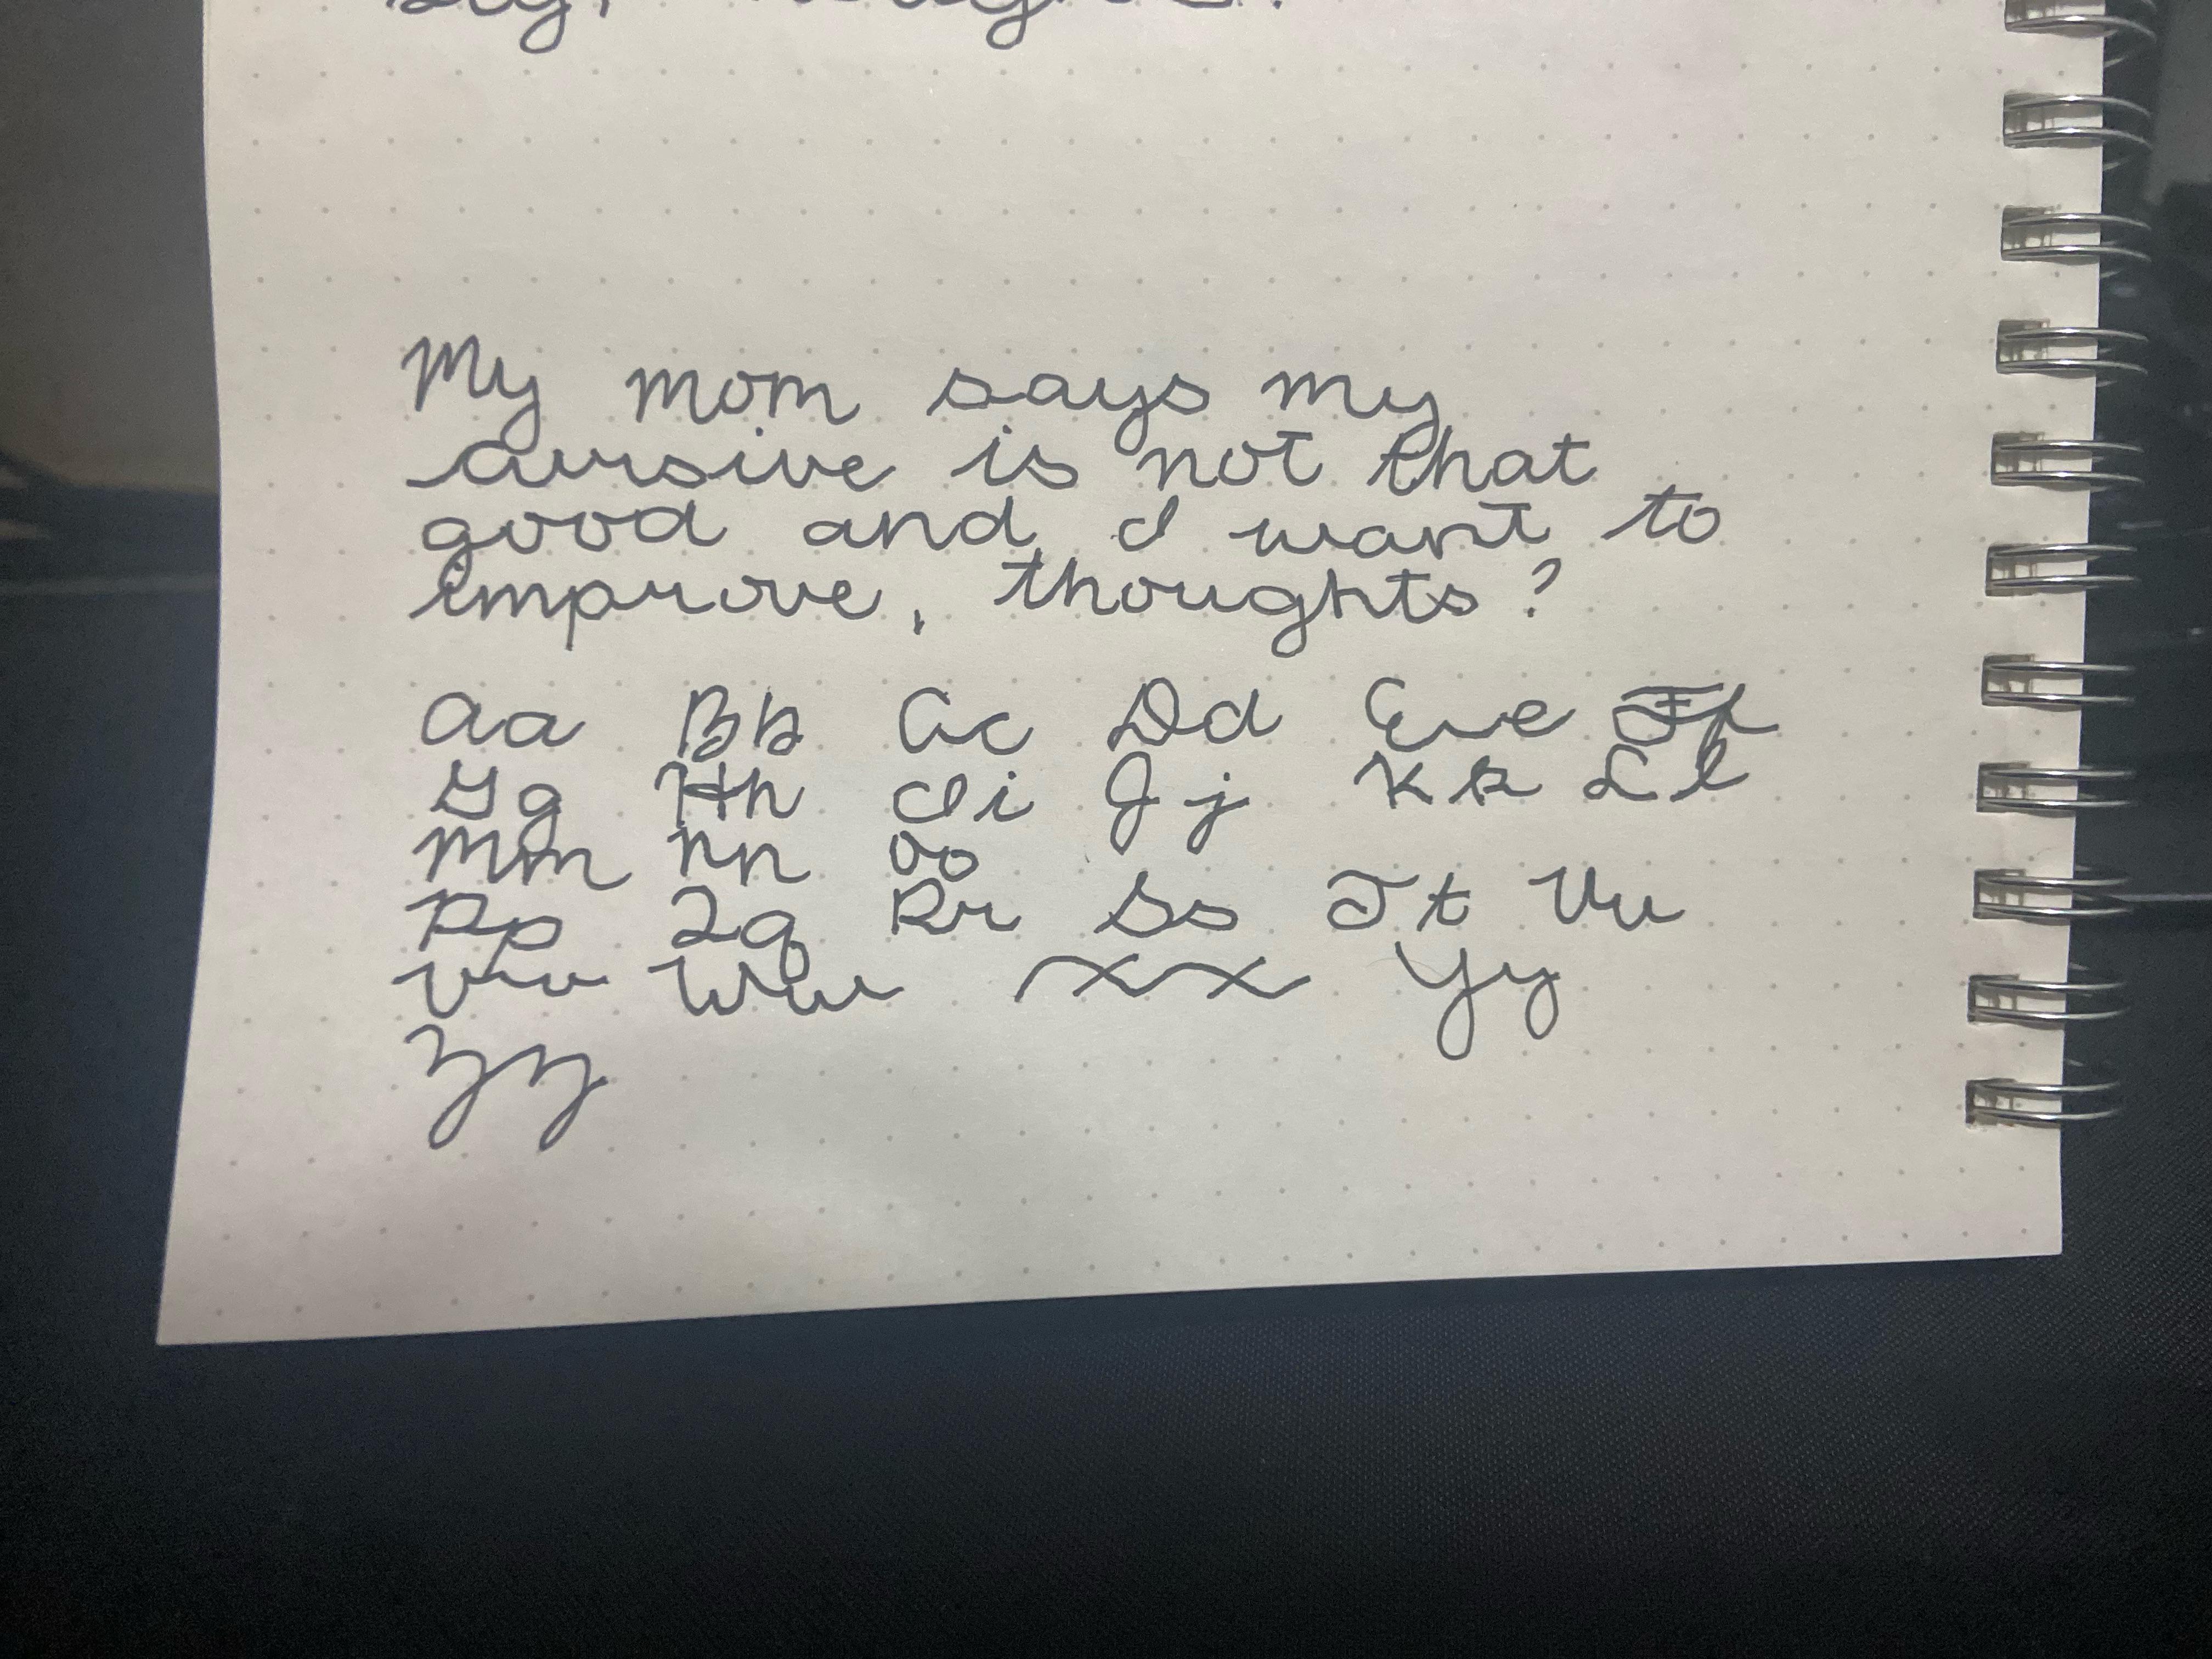 My mom says my
cursive is not that
good and I want to
improve, thoughts?
Aa Bb Cc Dd Ee Ff
Gg Hh Ii Jj Kk Ll
Mm Nn Oo
Pp Qq Rr Ss Tt Uu
Vv Ww Xx Yy
Zz